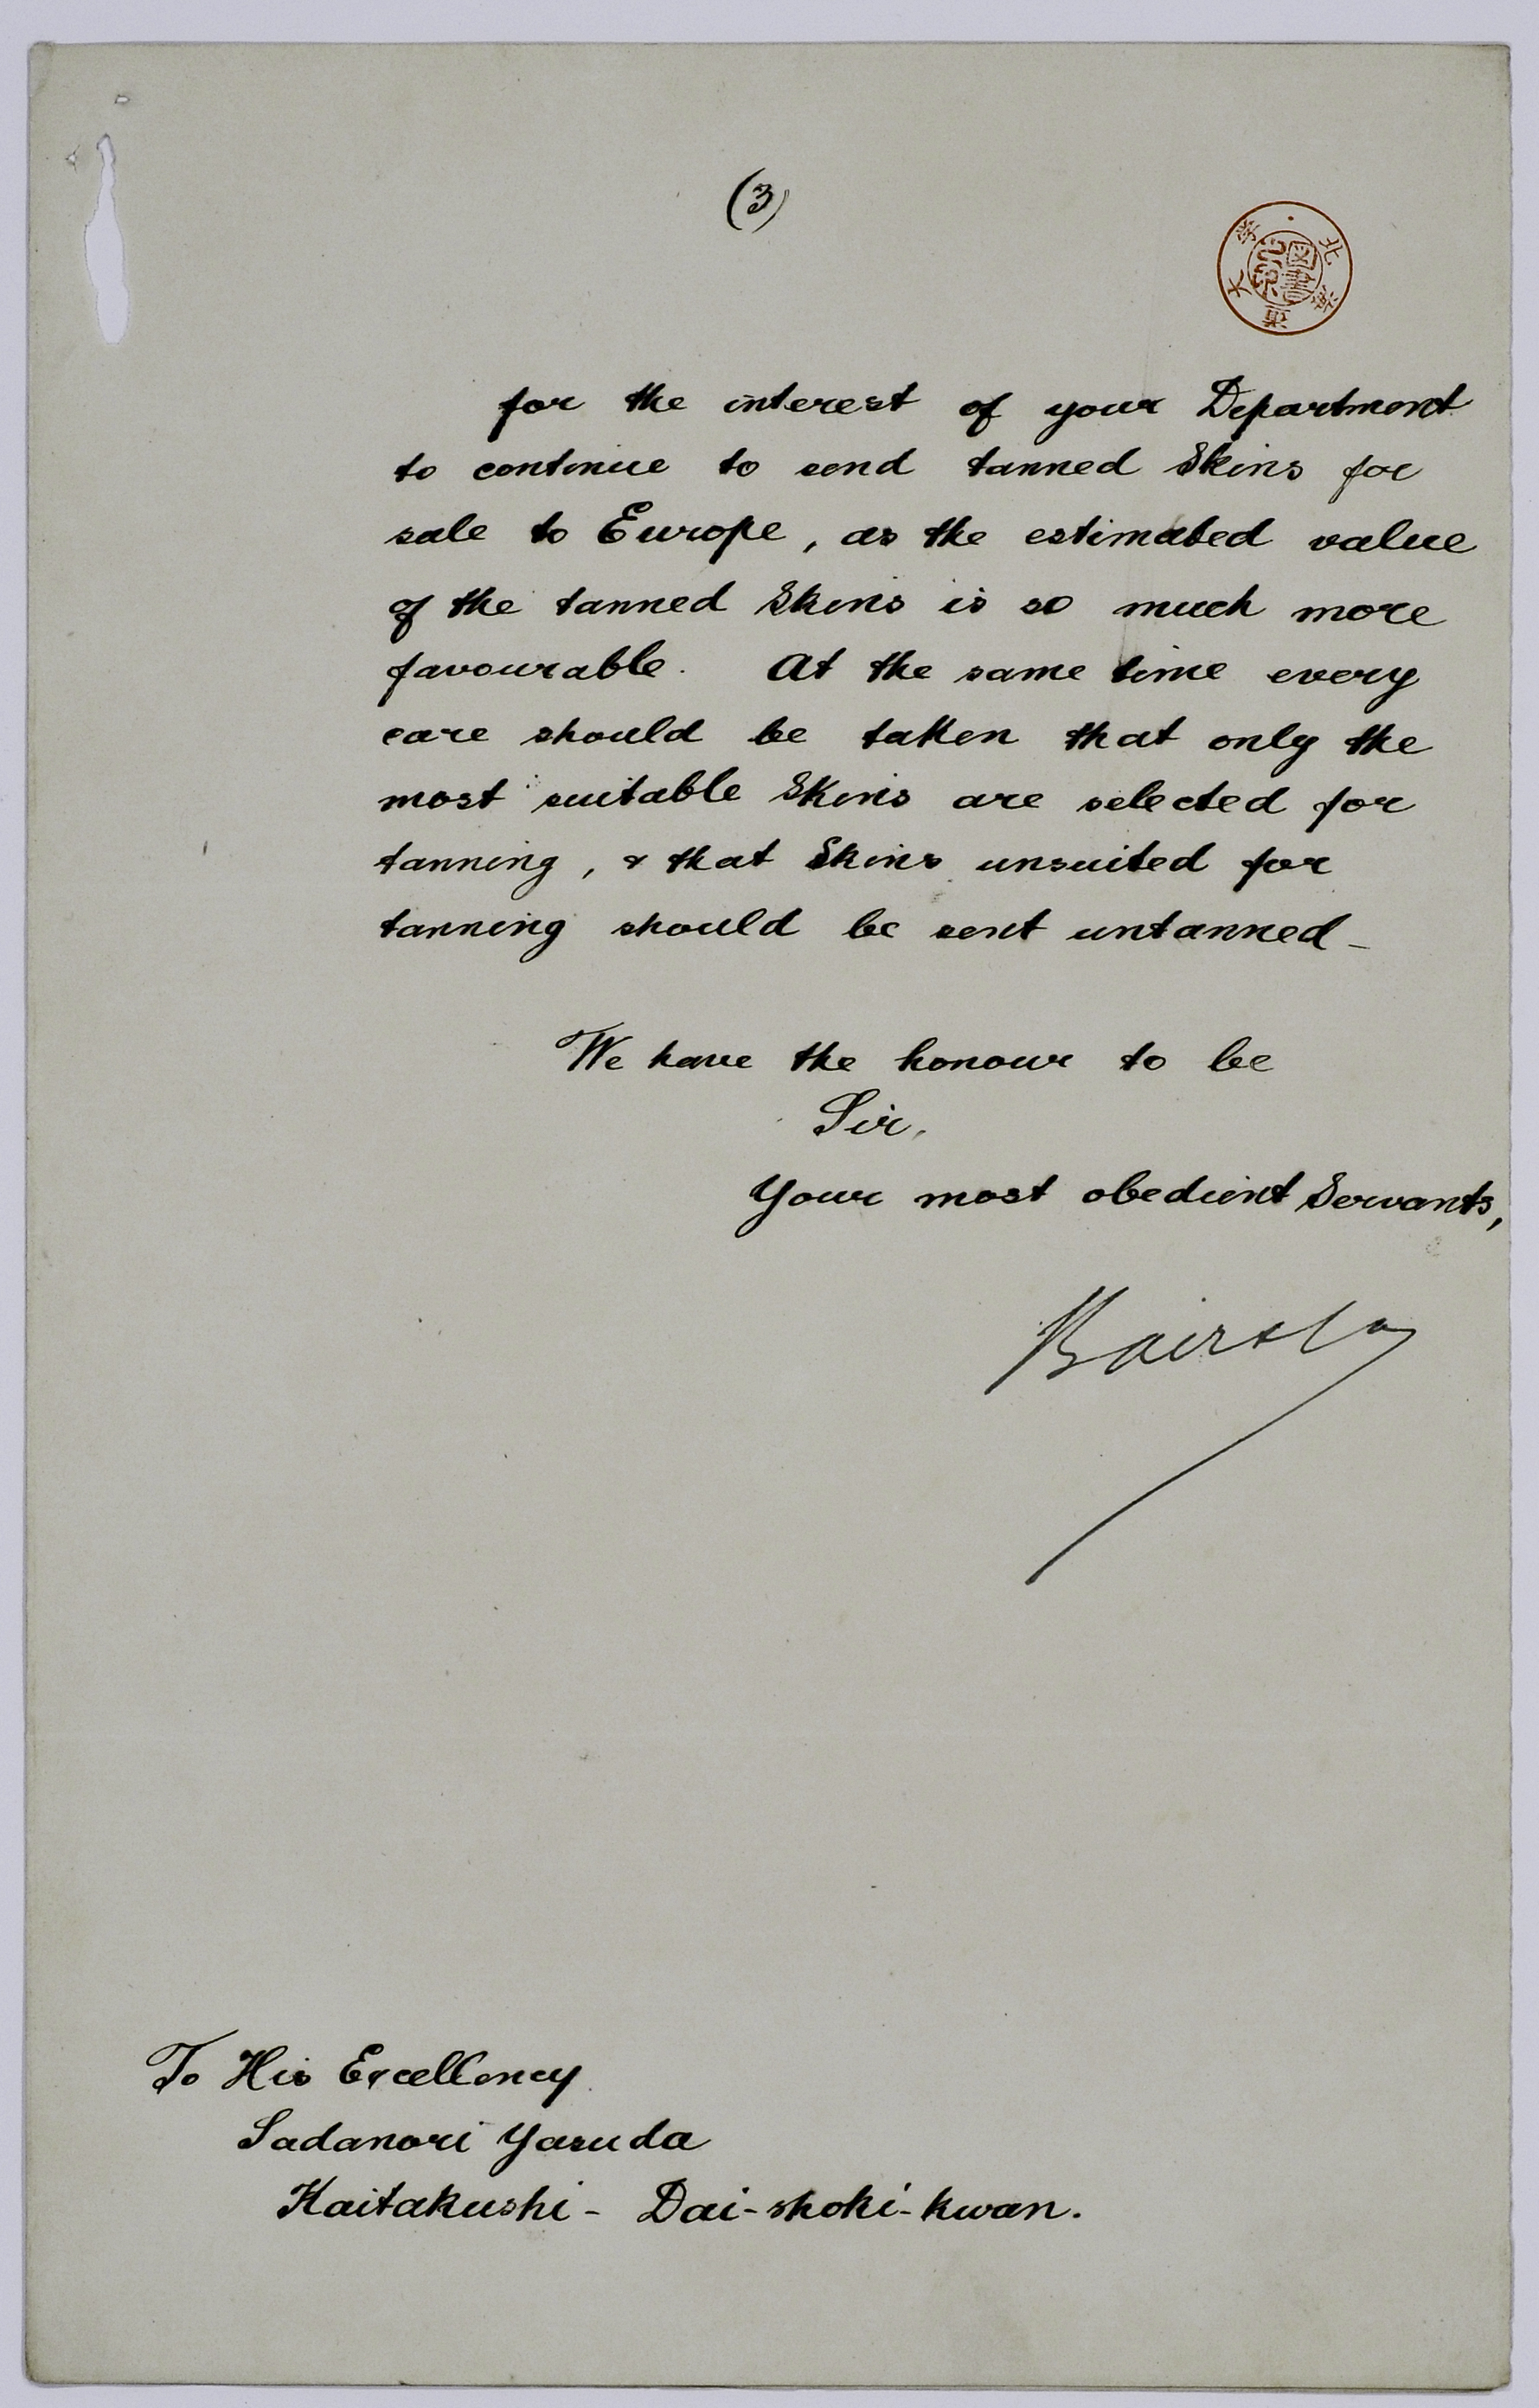 (3)
北海道大學
圖書
for the interest of your Department
to continue to send tanned Skins for
sale to Europe, as the estimated value
of the tanned Skins is so much more
favourable. At the same time every
care should be taken that only the
most suitable Skins are selected for
tanning, & that Skins unsuited for
tanning should be sent untanned_
We have the honour to be
Sir,
Your most obedient Servants,
To His Excellency
Sadanori Yasuda
Kaitakushi - Dai-shoki-kwan.